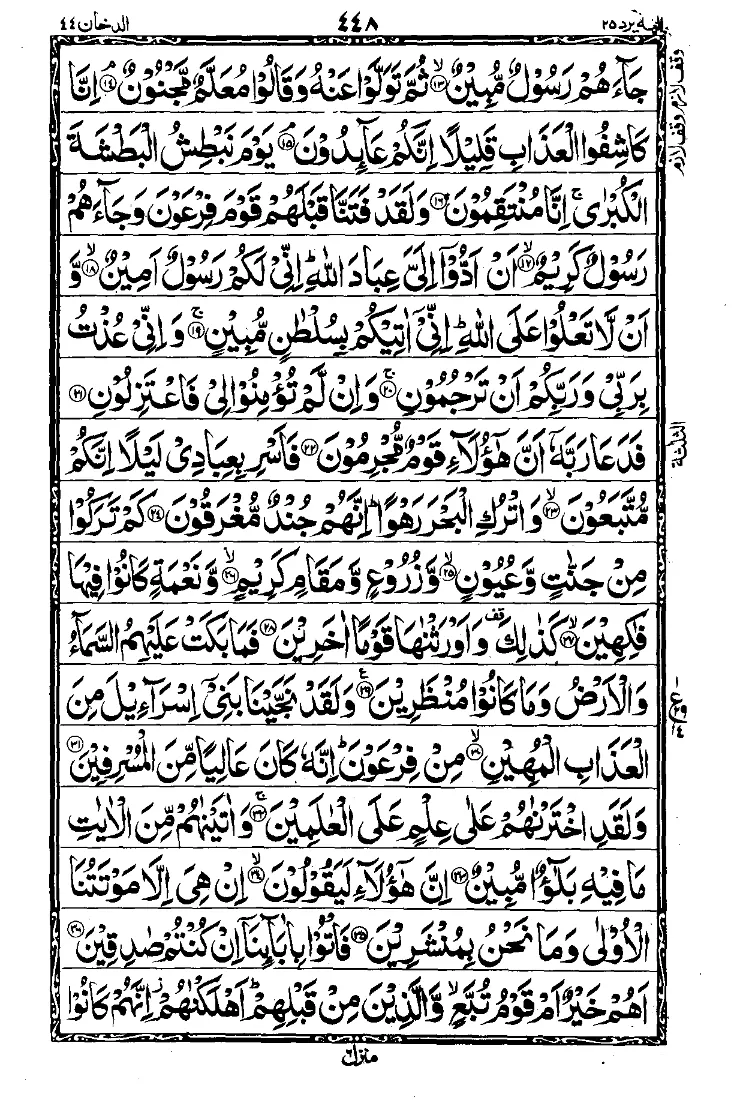 الدخان ٤٤
٤٤٨
اليه يرد ٢٥
جَآءَهُمْ رَسُوْلٌ مُّبِيْنٌ ۙ‏﴿۱۳﴾ ثُمَّ تَوَلَّوْا عَنْهُ وَقَالُوْا مُعَلَّمٌ مَّجْنُوْنٌ ۘ‏﴿۱۴﴾ اِنَّا
كَاشِفُوا الْعَذَابِ قَلِيْلًا اِنَّكُمْ عَآئِدُوْنَ ۘ‏﴿۱۵﴾ يَوْمَ نَبْطِشُ الْبَطْشَةَ
الْكُبْرٰى ۚ اِنَّا مُنْتَقِمُوْنَ ﴿۱۶﴾ وَلَقَدْ فَتَنَّا قَبْلَهُمْ قَوْمَ فِرْعَوْنَ وَجَآءَهُمْ
رَسُوْلٌ كَرِيْمٌ ۙ‏﴿۱۷﴾ اَنْ اَدُّوْۤا اِلَىَّ عِبَادَ اللّٰهِ ؕ اِنِّىْ لَكُمْ رَسُوْلٌ اَمِيْنٌ ۙ‏﴿۱۸﴾ وَّ
اَنْ لَّا تَعْلُوْا عَلَى اللّٰهِ ؕ اِنِّىْۤ اٰتِيْكُمْ بِسُلْطٰنٍ مُّبِيْنٍ ۚ‏﴿۱۹﴾ وَاِنِّىْ عُذْتُ
بِرَبِّىْ وَرَبِّكُمْ اَنْ تَرْجُمُوْنِ ۚ‏﴿۲۰﴾ وَاِنْ لَّمْ تُؤْمِنُوْا لِىْ فَاعْتَزِلُوْنِ ﴿۲۱﴾
فَدَعَا رَبَّهٗۤ اَنَّ هٰٓؤُلَآءِ قَوْمٌ مُّجْرِمُوْنَ ﴿۲۲﴾ فَاَسْرِ بِعِبَادِىْ لَيْلًا اِنَّكُمْ
مُّتَّبَعُوْنَ ۙ‏﴿۲۳﴾ وَاتْرُكِ الْبَحْرَ رَهْوًا ؕ اِنَّهُمْ جُنْدٌ مُّغْرَقُوْنَ ﴿۲۴﴾ كَمْ تَرَكُوْا
مِنْ جَنّٰتٍ وَّعُيُوْنٍ ۙ‏﴿۲۵﴾ وَّزُرُوْعٍ وَّمَقَامٍ كَرِيْمٍ ۙ‏﴿۲۶﴾ وَّنَعْمَةٍ كَانُوْا فِيْهَا
فٰكِهِيْنَ ۙ‏﴿۲۷﴾ كَذٰلِكَ قف وَاَوْرَثْنٰهَا قَوْمًا اٰخَرِيْنَ ﴿۲۸﴾ فَمَا بَكَتْ عَلَيْهِمُ السَّمَآءُ
وَالْاَرْضُ وَمَا كَانُوْا مُنْظَرِيْنَ ﴿۲۹﴾ع وَلَقَدْ نَجَّيْنَا بَنِىْۤ اِسْرَآءِيْلَ مِنَ
الْعَذَابِ الْمُهِيْنِ ۙ‏﴿۳۰﴾ مِنْ فِرْعَوْنَ ؕ اِنَّهٗ كَانَ عَالِيًا مِّنَ الْمُسْرِفِيْنَ ﴿۳۱﴾
وَلَقَدِ اخْتَرْنٰهُمْ عَلٰى عِلْمٍ عَلَى الْعٰلَمِيْنَ ۚ‏﴿۳۲﴾ وَاٰتَيْنٰهُمْ مِّنَ الْاٰيٰتِ
مَا فِيْهِ بَلٰٓؤٌا مُّبِيْنٌ ﴿۳۳﴾ اِنَّ هٰٓؤُلَآءِ لَيَقُوْلُوْنَ ۙ‏﴿۳۴﴾ اِنْ هِىَ اِلَّا مَوْتَتُنَا
الْاُوْلٰى وَمَا نَحْنُ بِمُنْشَرِيْنَ ﴿۳۵﴾ فَاْتُوْا بِاٰبَآئِنَاۤ اِنْ كُنْتُمْ صٰدِقِيْنَ ﴿۳۶﴾
اَهُمْ خَيْرٌ اَمْ قَوْمُ تُبَّعٍ ۙ وَّالَّذِيْنَ مِنْ قَبْلِهِمْ ؕ اَهْلَكْنٰهُمْ ۫ اِنَّهُمْ كَانُوْا
وقف لازم وقف لازم
الثلثة
ع
۲۹
۱۴
منزل